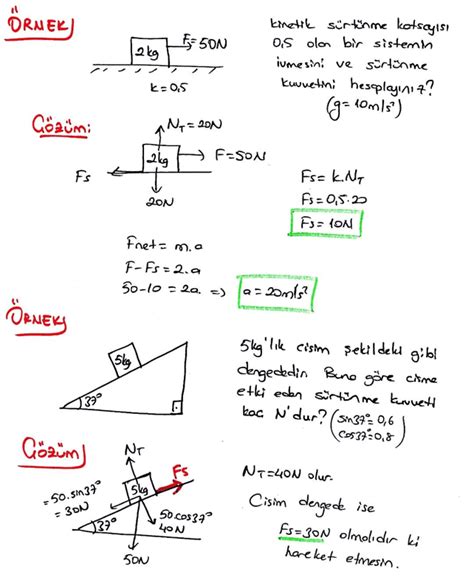 ÖRNEK)
F=50N
2kg
k=0,5
kinetik sürtünme katsayısı
0,5 olan bir sistemin
ivmesini ve sürtünme
kuvvetini hesaplayınız?
(g=10m/s²)
Çözüm:
NT=20N
2kg
F=50N
Fs
20N
Fs=k.NT
Fs=0,5.20
Fs=10N
Fnet=m.a
F-Fs=2.a
50-10=2a. => a=20m/s²
ÖRNEK)
5kg
37°
5kg'lık cisim şekildeki gibi
dengededir. Buna göre cisme
etki eden sürtünme kuvveti
kaç N'dur? (sin37°=0,6
cos37°=0,8)
Çözüm)
NT
Fs
5kg
=50.sin37°
=30N
37°
50.cos37°
40N
50N
NT=40N olur.
Cisim dengede ise
Fs=30N olmalıdır ki
hareket etmesin.